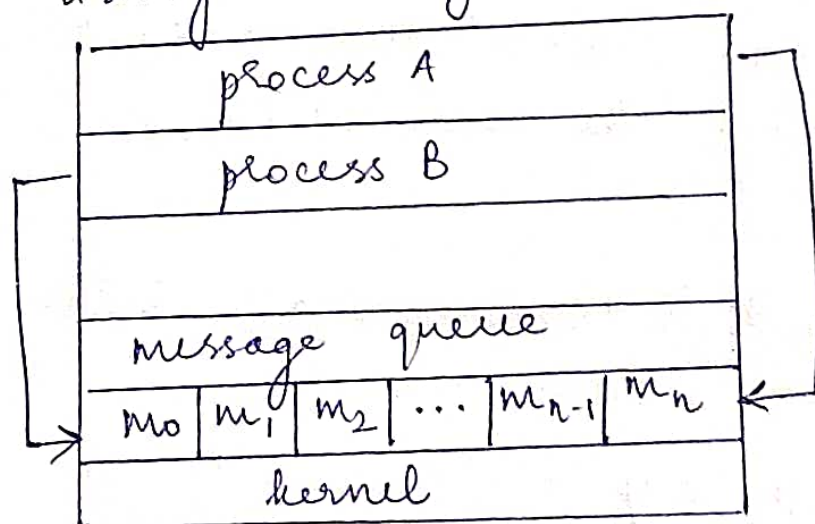 process A
process B
message queue
m₀ m₁ m₂ ... mₙ₋₁ mₙ
kernel